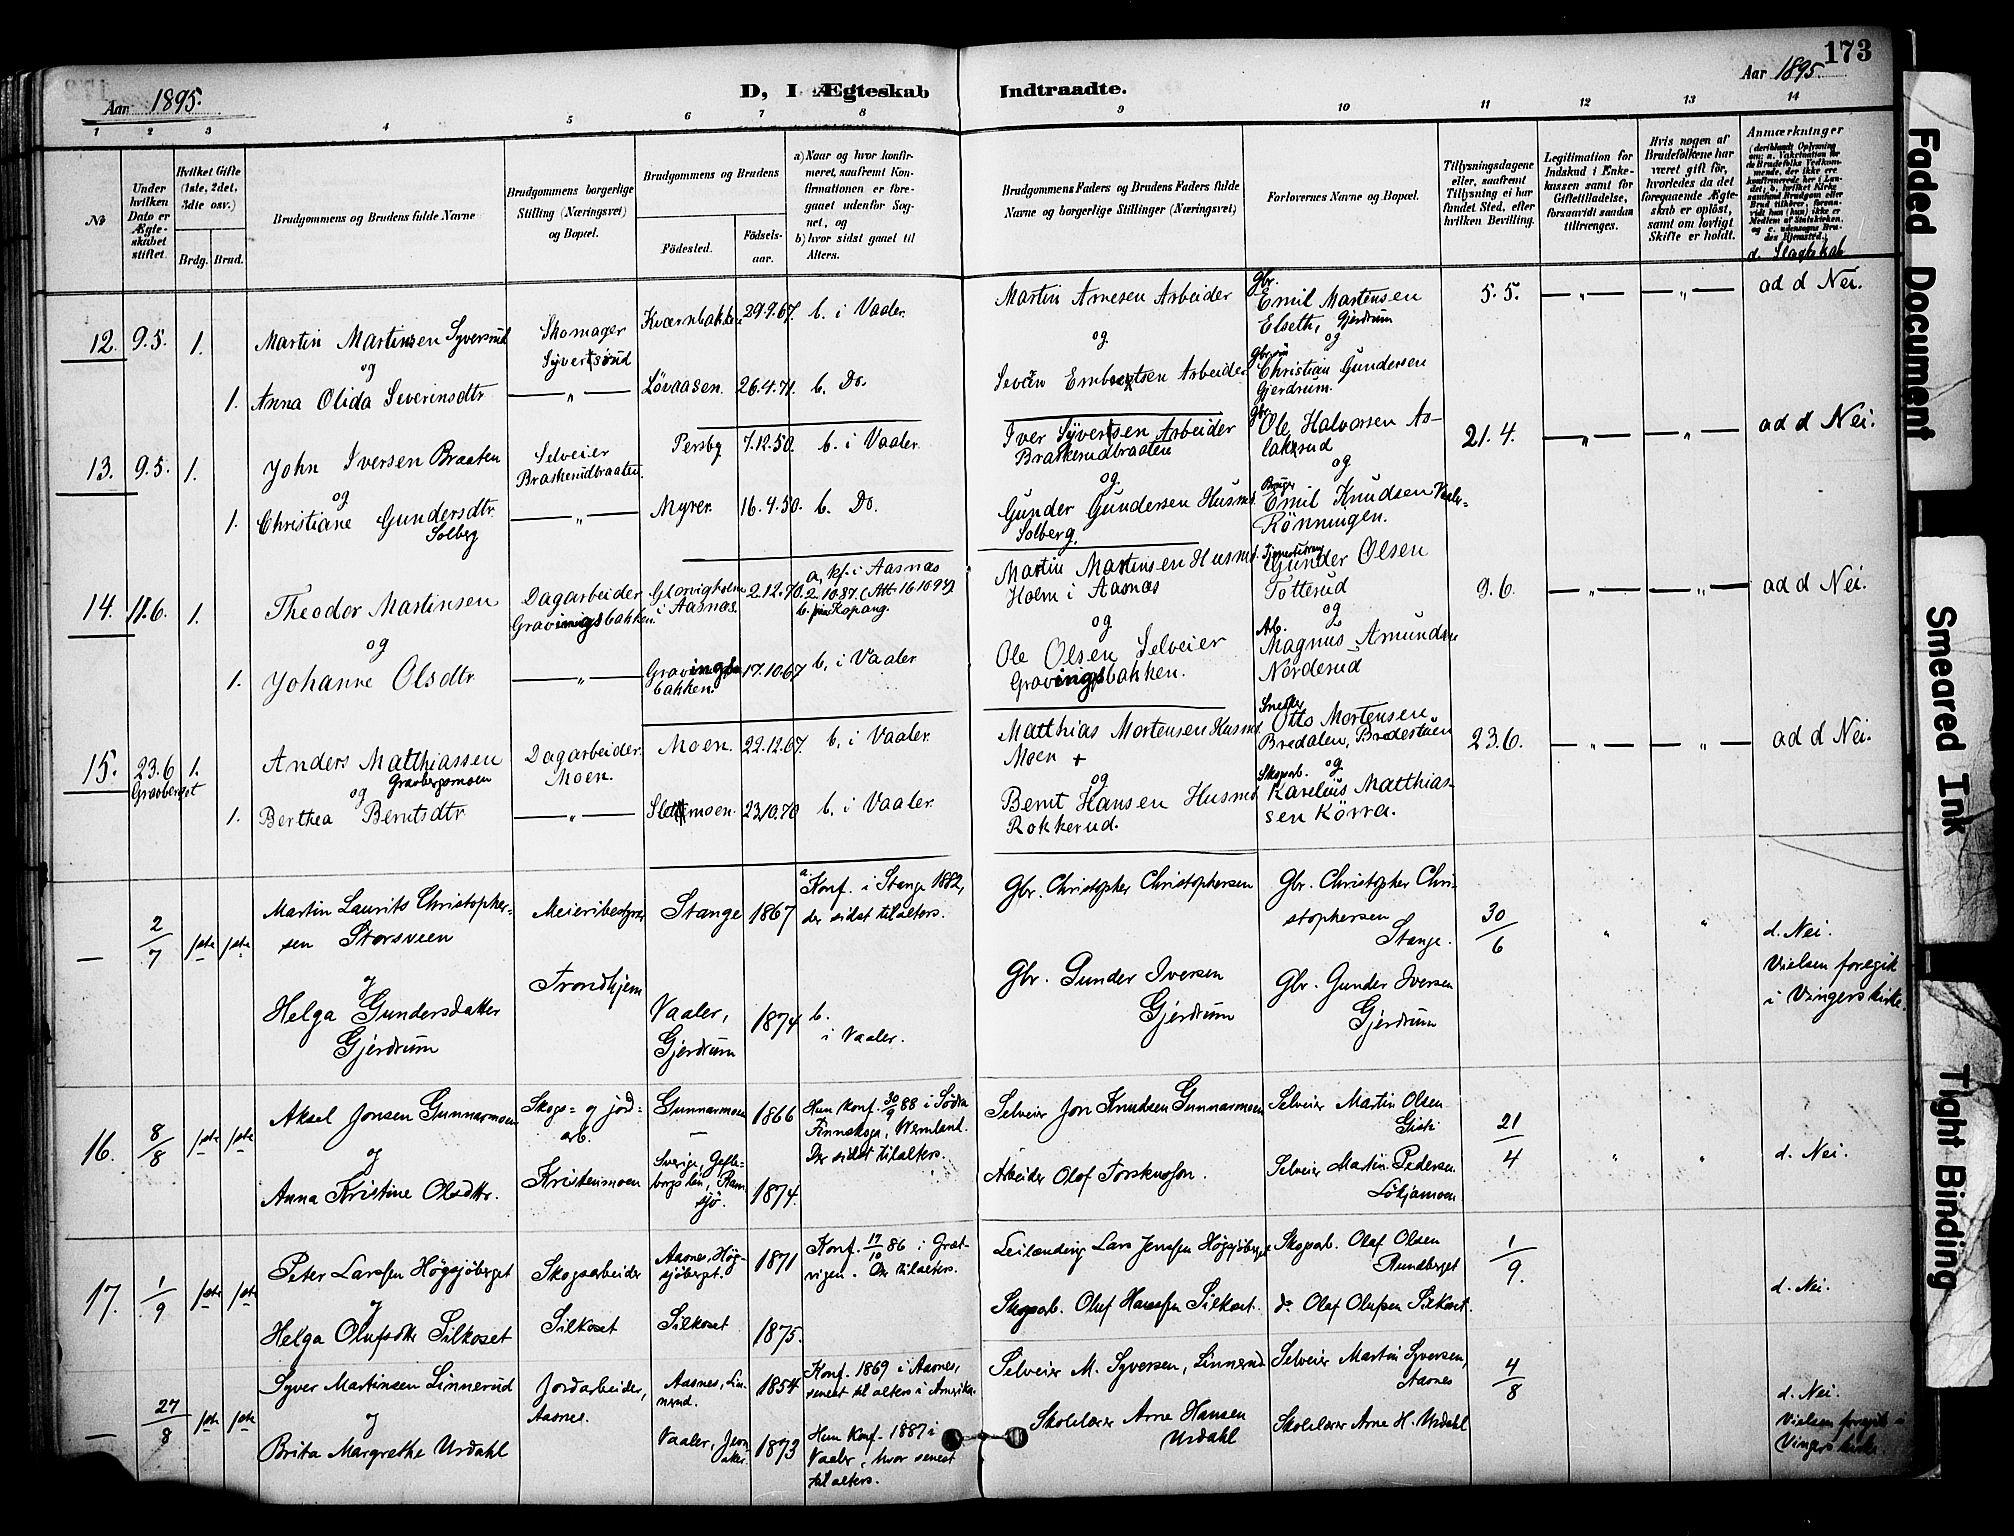 173
Aar 1895.
D, I Ægteskab Indtraadte.
Aar 1895.
1 2 3 4 5 6 7 8 9 10 11 12 13 14
№
Under hvilken Dato er Ægteskabet stiftet.
Hvilket Gifte (1ste, 2det, 3dte osv.)
Brdg. Brud.
Brudgommens og Brudens fulde Navne
Brudgommens borgerlige Stilling (Næringsvei) og Bopæl.
Brudgommens og Brudens
Födested.
Födselsaar.
a) Naar og hvor konfirmeret, saafremt Konfirmationen er foregaaet udenfor Sognet, og
b) hvor sidst gaaet til Alters.
Brudgommens Faders og Brudens Faders fulde Navne og borgerlige Stillinger (Næringsvei)
Forlovernes Navne og Bopæl.
Tillysningsdagene eller, saafremt Tillysning ei har fundet Sted, efter hvilken Bevilling.
Legitimation for Indskud i Enkekassen samt for Giftetilladelse, forsaavidt saadan tiltrænges.
Hvis nogen af Brudefolkene har været gift för, hvorledes da det foregaaende Ægteskab er oplöst, samt om lovligt Skifte er holdt.
Anmærkninger
d. Slagtskab
12. 9.5. 1. Martin Martinsen Syversrud Skomager Syvertsrud Kværnbakken 29.9.67. b. i Vaaler. Martin Arnesen Arbeider Gbr. Emil Martinsen Elseth, Gjerdrum 5.5. — " — — " — ad d Nei.
og
1. Anna Olida Severinsdtr — " — Lövaasen. 26.4.71. b. Do. Severin Embretsen Arbeider Christian Gundersen Gjerdrum.
13. 9.5. 1. John Iversen Braaten Selveier Braskerudbraaten Persby 7.12.50. b. i Vaaler. Iver Syvertsen Arbeider Braskerudbraaten Gbr. Ole Halvorsen Aslakrud 21.4. — " — — " — ad d Nei.
og
1. Christiane Gundersdtr. Solberg — " — Myrer. 16.4.50. b. Do. Gunder Gundersen Husmd. Solberg. Emil Knudsen Rönningen.
14. 11.6. 1. Theodor Martinsen Dagarbeider Gravingsbakken. Glorvigholm i Aasnæs. 2.12.70. a, kf. i Aasnæs 2.10.87. Martin Martinsen Husmd. Holm i Aasnæs Gunder Olsen Totterud 9.6. — " — — " — ad d Nei.
og
1. Johanne Olsdtr. — " — Gravingsbakken. 17.10.67 b. i Vaaler Ole Olsen Selveier Gravingsbakken. Arb. Magnus Amundsen Norderud
15. 23.6 Gravberget 1. Anders Matthiassen Gravbergsmoen Dagarbeider. Moen. Moen. 22.12.67. b. i Vaaler. Matthias Mortensen Husmd. Moen + Snedker Otto Mortensen Bredalen, 23.6. — " — — " — ad d Nei.
og
1. Berthea Berntsdtr. — " — Slettmoen. 23.10.70 b. i Vaaler. Bernt Hansen Husmd Rokkerud. Skogarb. Karelius Matthiassen Körra.
— 2/7 1ste 1ste Martin Laurits Christophersen Storsveen Meieribestyrer Stange 1867 a Konf. i Stange 1882, der sidst tilalters. Gbr. Christopher Christophersen Gbr. Christopher Christophersen Stange. 30/6 " " d. Nei.
og
Helga Gundersdatter Gjerdrum Trondhjem Vaaler, Gjerdrum 1874 b. i Vaaler. Gbr. Gunder Iversen Gjerdrum Gbr. Gunder Iversen Gjerdrum Vielsen foregik i Vingers kirke.
16. 8/8 1ste 1ste Aksel Jonsen Gunnarmoen Skogs= og jord=arb. Gunnarmoen 1866 Hun konf. 30/9 88 i Södra Finnskoga, Wermland. Der sidst tilalters. Selveier Jon Knudsen Gunnarmoen Selveier Martin Olsen 21/4 " " d. Nei.
og
Anna Kristine Olsdtr. Kristenmoen Sverige, Gefleborgs len, Ramsjö. 1874. Arbeider Olof Selveier Martin Pedersen
17. 1/9 1ste 1ste Peter Larssen Högsjöberget Skogsarbeider Aasnes, Högsjöberget. 1871 Konf. 17/10 86 i Græsvigen. Der tilalters. Leilænding Lars Jenssen Högsjöberget Skogsarb. Olaf Olsen Rundberget 1/9. d. Nei.
og
Helga Olufsdtr Silkoset Silkoset Silkoset 1875. Skogsarb. Oluf Hanssen Silkoset. do Olaf Olufsen Silkoset.
— 27/8 1ste 1ste Syver Martinsen Linnerud Jordarbeider, Aasnes. Aasnes, Linnerud. 1854 Konf. 1869 i Aasnes, senest til alters i Amerika. Selveier M. Syversen, Linnerud Selveier Martin Syversen, Aasnes 4/8 d. Nei.
og
Brita Margrethe Urdahl Vaaler, 1873 Hun Konf. 1887 i Vaaler, hvor senest til alters. Skolelærer Arne Hansen Urdahl Skolelærer Arne H. Urdahl Vielsen foregik i Vingers kirke
Faded Document
Smeared Ink
Tight Binding